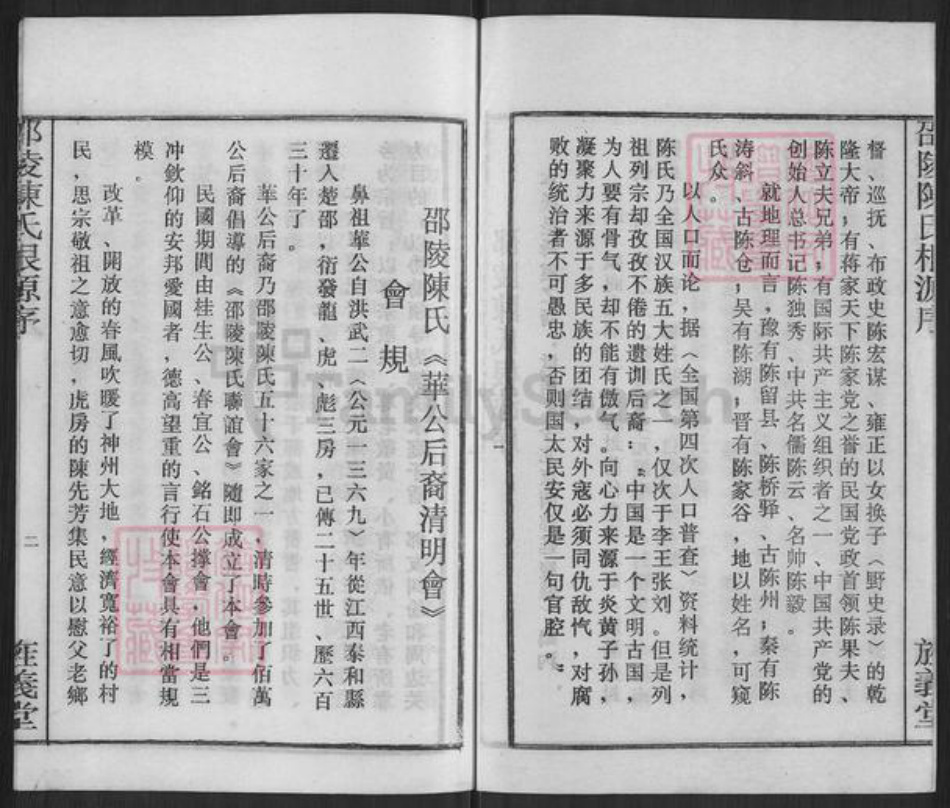 邵陵陳氏根源序
旌義堂
督、巡抚、布政史陈宏谋、雍正以女换子（野史录）的乾
隆大帝；有蒋家天下陈家党之誉的民国党政首领陈果夫、
陈立夫兄弟；有国际共产主义组织者之一、中国共产党的
创始人总书记陈独秀、中共名儒陈云、名帅陈毅。
就地理而言，豫有陈留县、陈桥驿、古陈州；秦有陈
涛斜、古陈仓；吴有陈湖；晋有陈家谷，地以姓名，可窥
氏众。
以人口而论，据（全国第四次人口普查）资料统计，
陈氏乃全国汉族五大姓氏之一，仅次于李王张刘。但是列
祖列宗却孜孜不倦的遗训后裔：“中国是一个文明古国，
为人要有骨气，却不能有傲气。向心力来源于炎黄子孙，
凝聚力来源于多民族的团结，对外寇必须同仇敌忾，对腐
败的统治者不可愚忠，否则国太民安仅是一句官腔。”
一
邵陵陳氏《華公后裔清明會》
會規
鼻祖華公自洪武二（公元一三六九）年從江西泰和縣
遷入楚邵，衍發龍、虎、彪三房，已傳二十五世、歷六百
三十年了。
華公后裔乃邵陵陳氏五十六家之一，清時參加了佰萬
公后裔倡導的《邵陵陳氏聯誼會》隨即成立了本會。
民國期間由桂生公、春宜公、銘石公撑會，他們是三
冲欽仰的安邦愛國者，德高望重的言行使本會具有相當規
模。
改革、開放的春風吹暖了神州大地，經濟寬裕了的村
民，思宗敬祖之意愈切，虎房的陳先芳集民意以慰父老鄉
邵陵陳氏根源序
二
旌義堂
FamilySearch